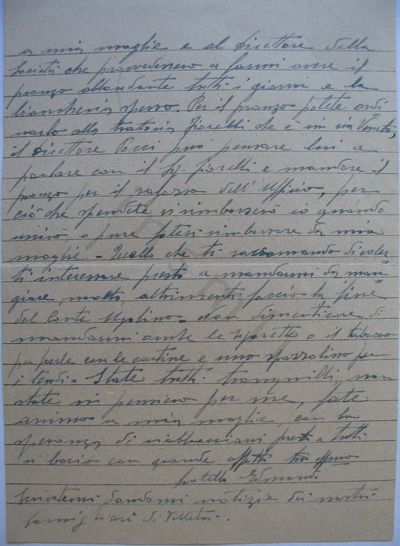 a mia moglie e al direttore della
società che provvedessero a farmi avere il
pranzo abbondante tutti i giorni e la
biancheria spesso. Per il pranzo potete ordi
narlo alla trattoria Fiorelli che è in via Veneto,
il direttore può pensare lui a
parlare con il Sig. Fiorelli e mandare il
pranzo per il ragazzo dell'Ufficio, per
ciò che spendete vi rimborserò io quando
uscirò o pure fatevi rimborsare da mia
moglie - Quello che ti raccomando di voler
ti interessare presto a mandarmi da man
giare, molto, altrimenti faccio la fine
del Conte Ugolino - Non dimenticare di
mandarmi anche le sigarette o il tabacco
per farle con le cartine e uno spazzolino per
i denti - State tutti tranquilli, non
state in pensiero per me, fate
animo a mia moglie, con la
speranza di riabbracciarvi presto a tutti
vi bacio con grande affetto tuo
fratello
Scrivetemi dandomi notizie dei nostri
famigliari di Velletri.